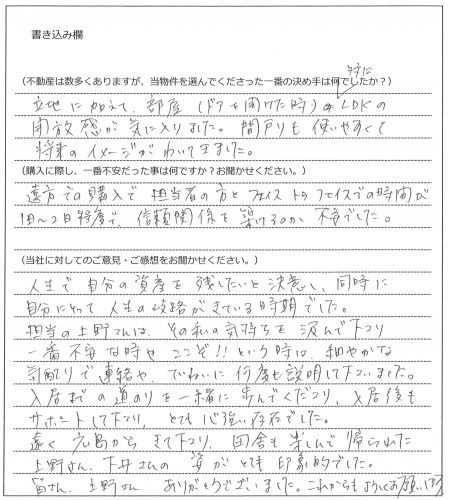 書き込み欄
(不動産は数多くありますが、当物件を選んでくださった一番の決め手は何でしたか?)
特に
立地に加えて、部屋(ドアを開けた時)のLDKの
開放感が気に入りました。間取りも使いやすくて
将来のイメージがわいてきました。
(購入に際し、一番不安だった事は何ですか?お聞かせください。)
遠方での購入で担当者の方とフェイストゥフェイスでの時間が
1日~2日程度で、信頼関係を築けるのか不安でした。
(当社に対してのご意見・ご感想をお聞かせください。)
人生で自分の資産を残したいと決意し、同時に
自分にとって人生の岐路がきている時期でした。
担当の上野さんは、その私の気持ちを汲んで下さり
一番不安な時や ここぞ!!という時に、細やかな
気配りで連絡や、ていねいに何度も説明して下さいました。
入居までの道のりを一緒に歩んでくださり、入居後も
サポートして下さり、とても心強い存在でした。
遠く広島からきて下さり、田舎も楽しんで帰られた
上野さん、下井さんの姿がとても印象的でした。
皆さん、上野さん ありがとうございました。これからもよろしくお願いします